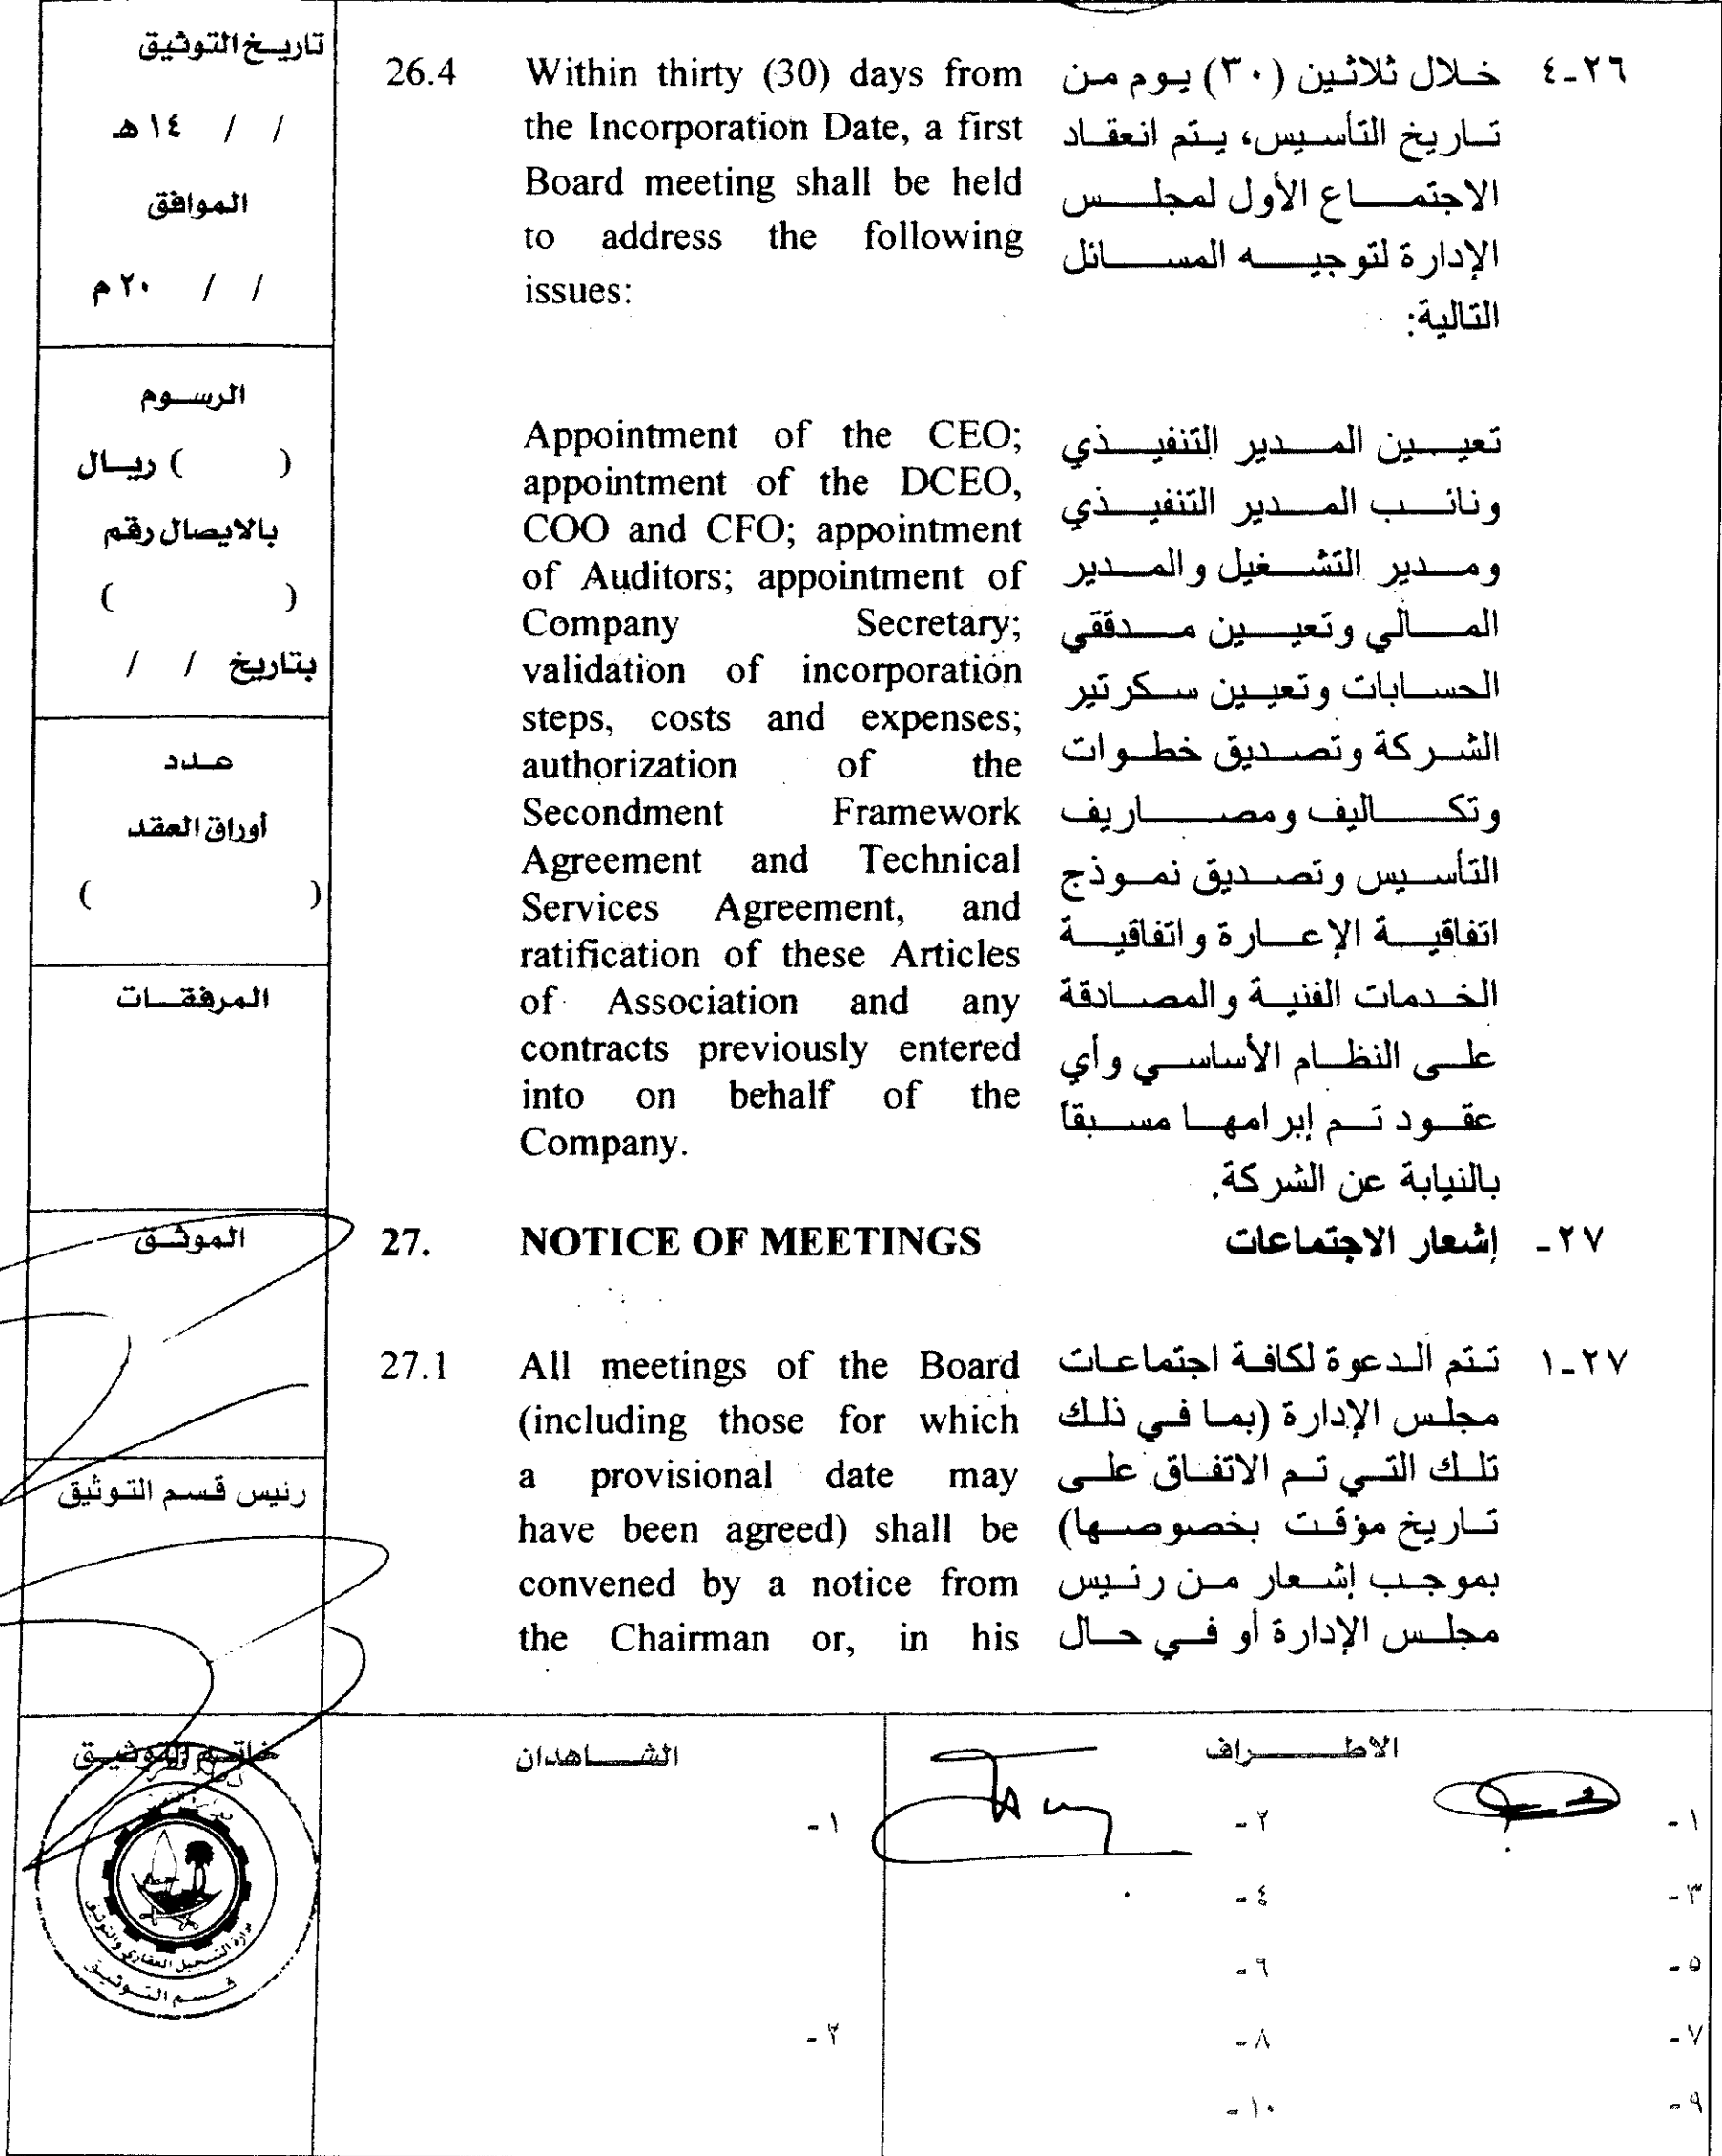 تاريخ التوثيق
/ / ١٤ هـ
الموافق
/ / ٢٠ م
الرسوم
( ) ريال
بالايصال رقم
( )
بتاريخ / /
عدد
أوراق العقد
( )
المرفقات
الموثق
رئيس قسم التوثيق
خاتم التوثيق
26.4 Within thirty (30) days from
the Incorporation Date, a first
Board meeting shall be held
to address the following
issues:
Appointment of the CEO;
appointment of the DCEO,
COO and CFO; appointment
of Auditors; appointment of
Company Secretary;
validation of incorporation
steps, costs and expenses;
authorization of the
Secondment Framework
Agreement and Technical
Services Agreement, and
ratification of these Articles
of Association and any
contracts previously entered
into on behalf of the
Company.
27. NOTICE OF MEETINGS
27.1 All meetings of the Board
(including those for which
a provisional date may
have been agreed) shall be
convened by a notice from
the Chairman or, in his
٢٦-٤ خلال ثلاثين (٣٠) يوم من
تاريخ التأسيس، يتم انعقاد
الاجتماع الأول لمجلس
الإدارة لتوجيه المسائل
التالية:
تعيين المدير التنفيذي
ونائب المدير التنفيذي
ومدير التشغيل والمدير
المالي وتعيين مدققي
الحسابات وتعيين سكرتير
الشركة وتصديق خطوات
وتكاليف ومصاريف
التأسيس وتصديق نموذج
اتفاقية الإعارة واتفاقية
الخدمات الفنية والمصادقة
على النظام الأساسي وأي
عقود تم إبرامها مسبقاً
بالنيابة عن الشركة.
٢٧- إشعار الاجتماعات
٢٧-١ تتم الدعوة لكافة اجتماعات
مجلس الإدارة (بما في ذلك
تلك التي تم الاتفاق على
تاريخ مؤقت بخصوصها)
بموجب إشعار من رئيس
مجلس الإدارة أو في حال
الاطراف
١- ٢-
٣- ٤-
٥- ٦-
٧- ٨-
٩- ١٠-
الشاهدان
١-
٢-
إدارة التسجيل العقاري والتوثيق
قسم التوثيق